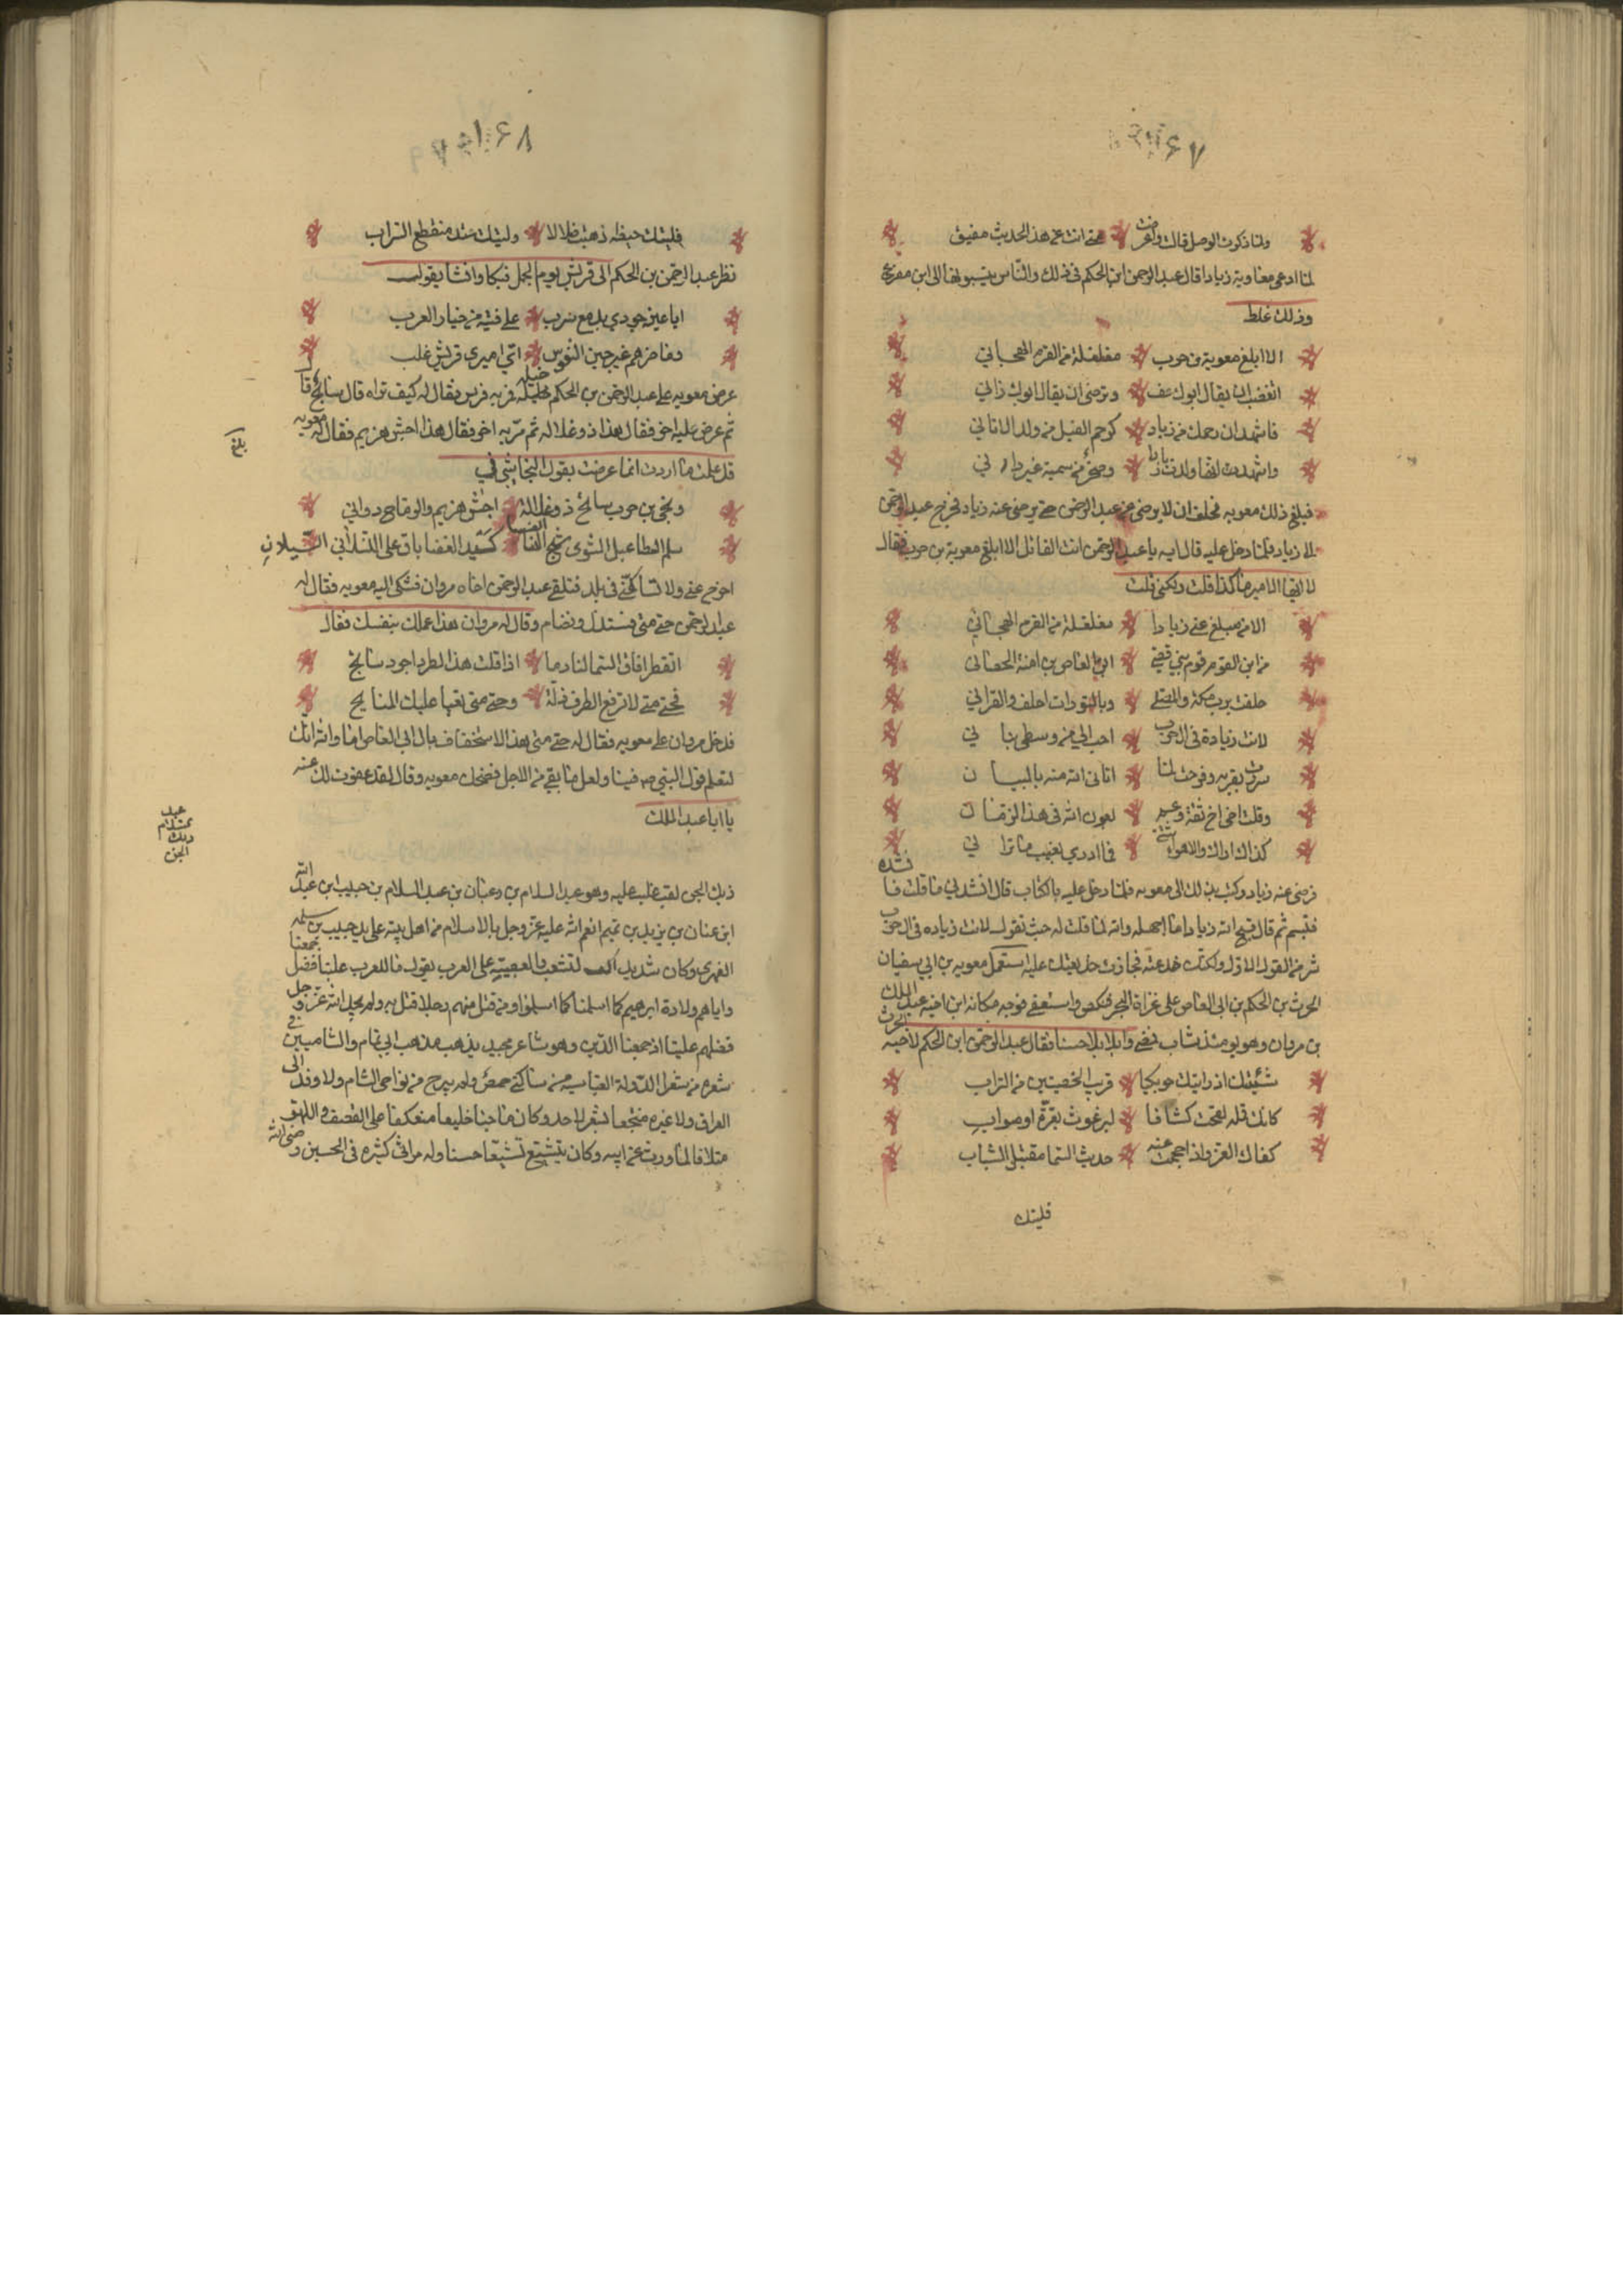 ٧٦٧
ولما ذكرت الوصل قالت واعرضت متى انت عن هذا الحديث مفيق
لما ادعى معاوية زيادا قال عبد الرحمن ابن الحكم في ذلك والناس ينسبونها الى ابن مفرغ
وذلك غلط
الا ابلغ معوية بن حرب مغلغلة من القرم الهجاني
اتغضب ان يقال ابوك عف وترضى ان يقال ابوك زاني
فاشهد ان رحمك من زياد كرحم الفيل من ولد الاتاني
واشهد انها ولدت زيادا وصخر من سمية غير داني
فبلغ ذلك معويه فحلف ان لا يرضى عن عبد الرحمن حتى يرضى عنه زياد فخرج عبد الرحمن
الى زياد فلما دخل عليه قال ايه يا عبد الرحمن انت القائل الا ابلغ معوية بن حرب فقال
لا ايها الامير ما كذا قلت ولكني قلت
الا من مبلغ عني زيادا مغلغلة من القرم الهجاني
من ابن القرم قرم بني قصي ابي العاص بن امنة الحصاني
حلفت برب مكة والمصلى وبالتورات احلف والقراني
لانت زيادة في ال حرب احب الي من وسطى بناني
سررت بقربه وفرحت لما اتاني الله منه بالبيان
وقلت اخي اخ ثقة وعم بعون الله في هذا الزمان
كذاك اراك والاهواء شتى فما ادري بغيب ما تراني
فرضى عنه زياد وكتب بذلك الى معويه فلما دخل عليه بالكتاب قال انشدني ما قلت فانشده
فتبسم ثم قال قبح الله زيادا ما اجهله والله لما قلت له حيث تقول لانت زياده في ال حرب
شر من القول الاول ولكنك خدعته فجازت خديعتك عليه استعمل معويه بن ابي سفيان
الحرث بن الحكم بن ابي العاص على غزاة البحر فنكص واستعفى فوجه مكانه ابن اخيه عبد الملك
بن مروان وهو يومئذ شاب فمضى وابلا بلاء حسنا فقال عبد الرحمن ابن الحكم لاخيه الحرث
شنئتك اذ رايتك حوتكيا قريب الخصيتين من التراب
كانك قمله لقحت كشافا لبرغوث بقرة او صواب
كفاك الغزو اذ احجمت عنه حديث السن مقتبل الشباب
فليتك
٧٦٨
فليتك حيضه ذهبت ضلالا وليتك عند منقطع التراب
نظر عبد الرحمن بن الحكم الى قريش يوم الجمل فبكا وانشا يقول
ايا عين جودي بدمع سرب على فتية من خيار العرب
وما ضرهم غير حين النفوس اي اميري قريش غلب
عرض معويه على عبد الرحمن بن الحكم خيله فمر به فرس فقال له كيف تراه قال سابح قال
ثم عرض عليه اخر فقال هذا ذو علاله ثم مر به اخر فقال هذا اجش هزيم فقال له معويه
قد علمت ما اردت انما عرضت بقول النجاشي في
ونجى بن حرب سابح ذو علالة اجش هزيم والرماح دواني
سليم الشظا عبل الشوى شنج النسا كسيد الغضا باق على النسلان
اخرج عني ولا تساكني في بلد فتلقى عبد الرحمن اخاه مروان فشكى اليه معويه فقال له
عبد الرحمن حتى متى نستذل ونضام وقال له مروان هذا عملك بنفسك فقال
اتقطر افاق السما لنا دما اذا قلت هذا الطرف اجرد سابح
فحتى متى لا نرفع الطرف ذلة وحتى متى تعيا عليك المنايح
فدخل مروان على معويه فقال له حتى متى هذا الاستخفاف بال ابي العاص اما والله انك
لتعلم قول النبي ص فينا ولعل ما بقي من الاجل فضحك معويه وقال لقد عفوت لك عنه
يا ابا عبد الملك
بلغ
عبد السلام ديك الجن
ديك الجن لقب غلب عليه وهو عبد السلام بن رعبان بن عبد السلام بن حبيب ابن عبد الله
ابن رعبان بن يزيد بن تميم انعم الله عليه عز وجل بالاسلام من اهل بيته على يد حبيب بن مسلمه
الفهري وكان شديد التشعب والعصبية على العرب يقول ما للعرب علينا فضل جمعنا
واياهم ولادة ابرهيم كما اسلمنا كما اسلموا ومن قتل منهم رجلا قتل به ولم نجد الله عز وجل
فضلهم علينا اذ جمعنا الدين وهو شاعر مجيد يذهب مذهب ابي تمام والشاميين في
شعره من شعرا الدولة العباسيه من ساكني حمص ولم يبرح من نواحي الشام ولا وفد الى
العراق ولا غيره منتجعا بشعره لاحد وكان ماجنا خليعا منعكفا على القصف واللهو
متلافا لما ورث عن ابيه وكان يتشيع تشيعا حسنا وله مراثي كثيره في الحسين رضى الله